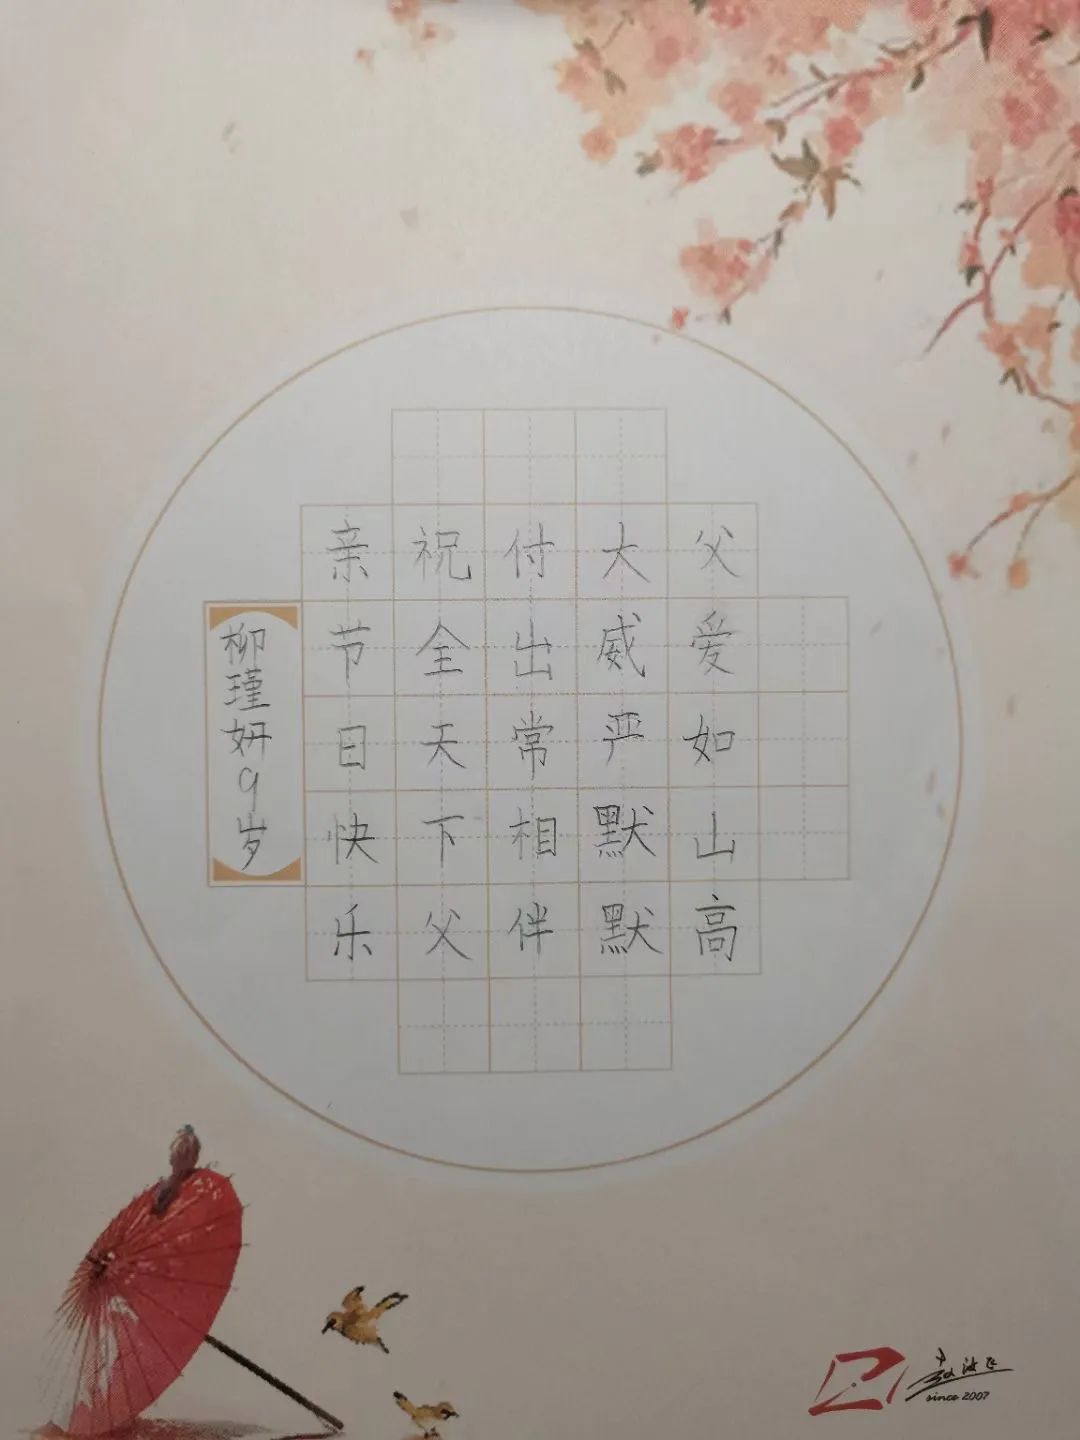 父爱如山高
大威严默默
付出常相伴
祝全天下父
亲节日快乐
柳瑾妍9岁
since 2007